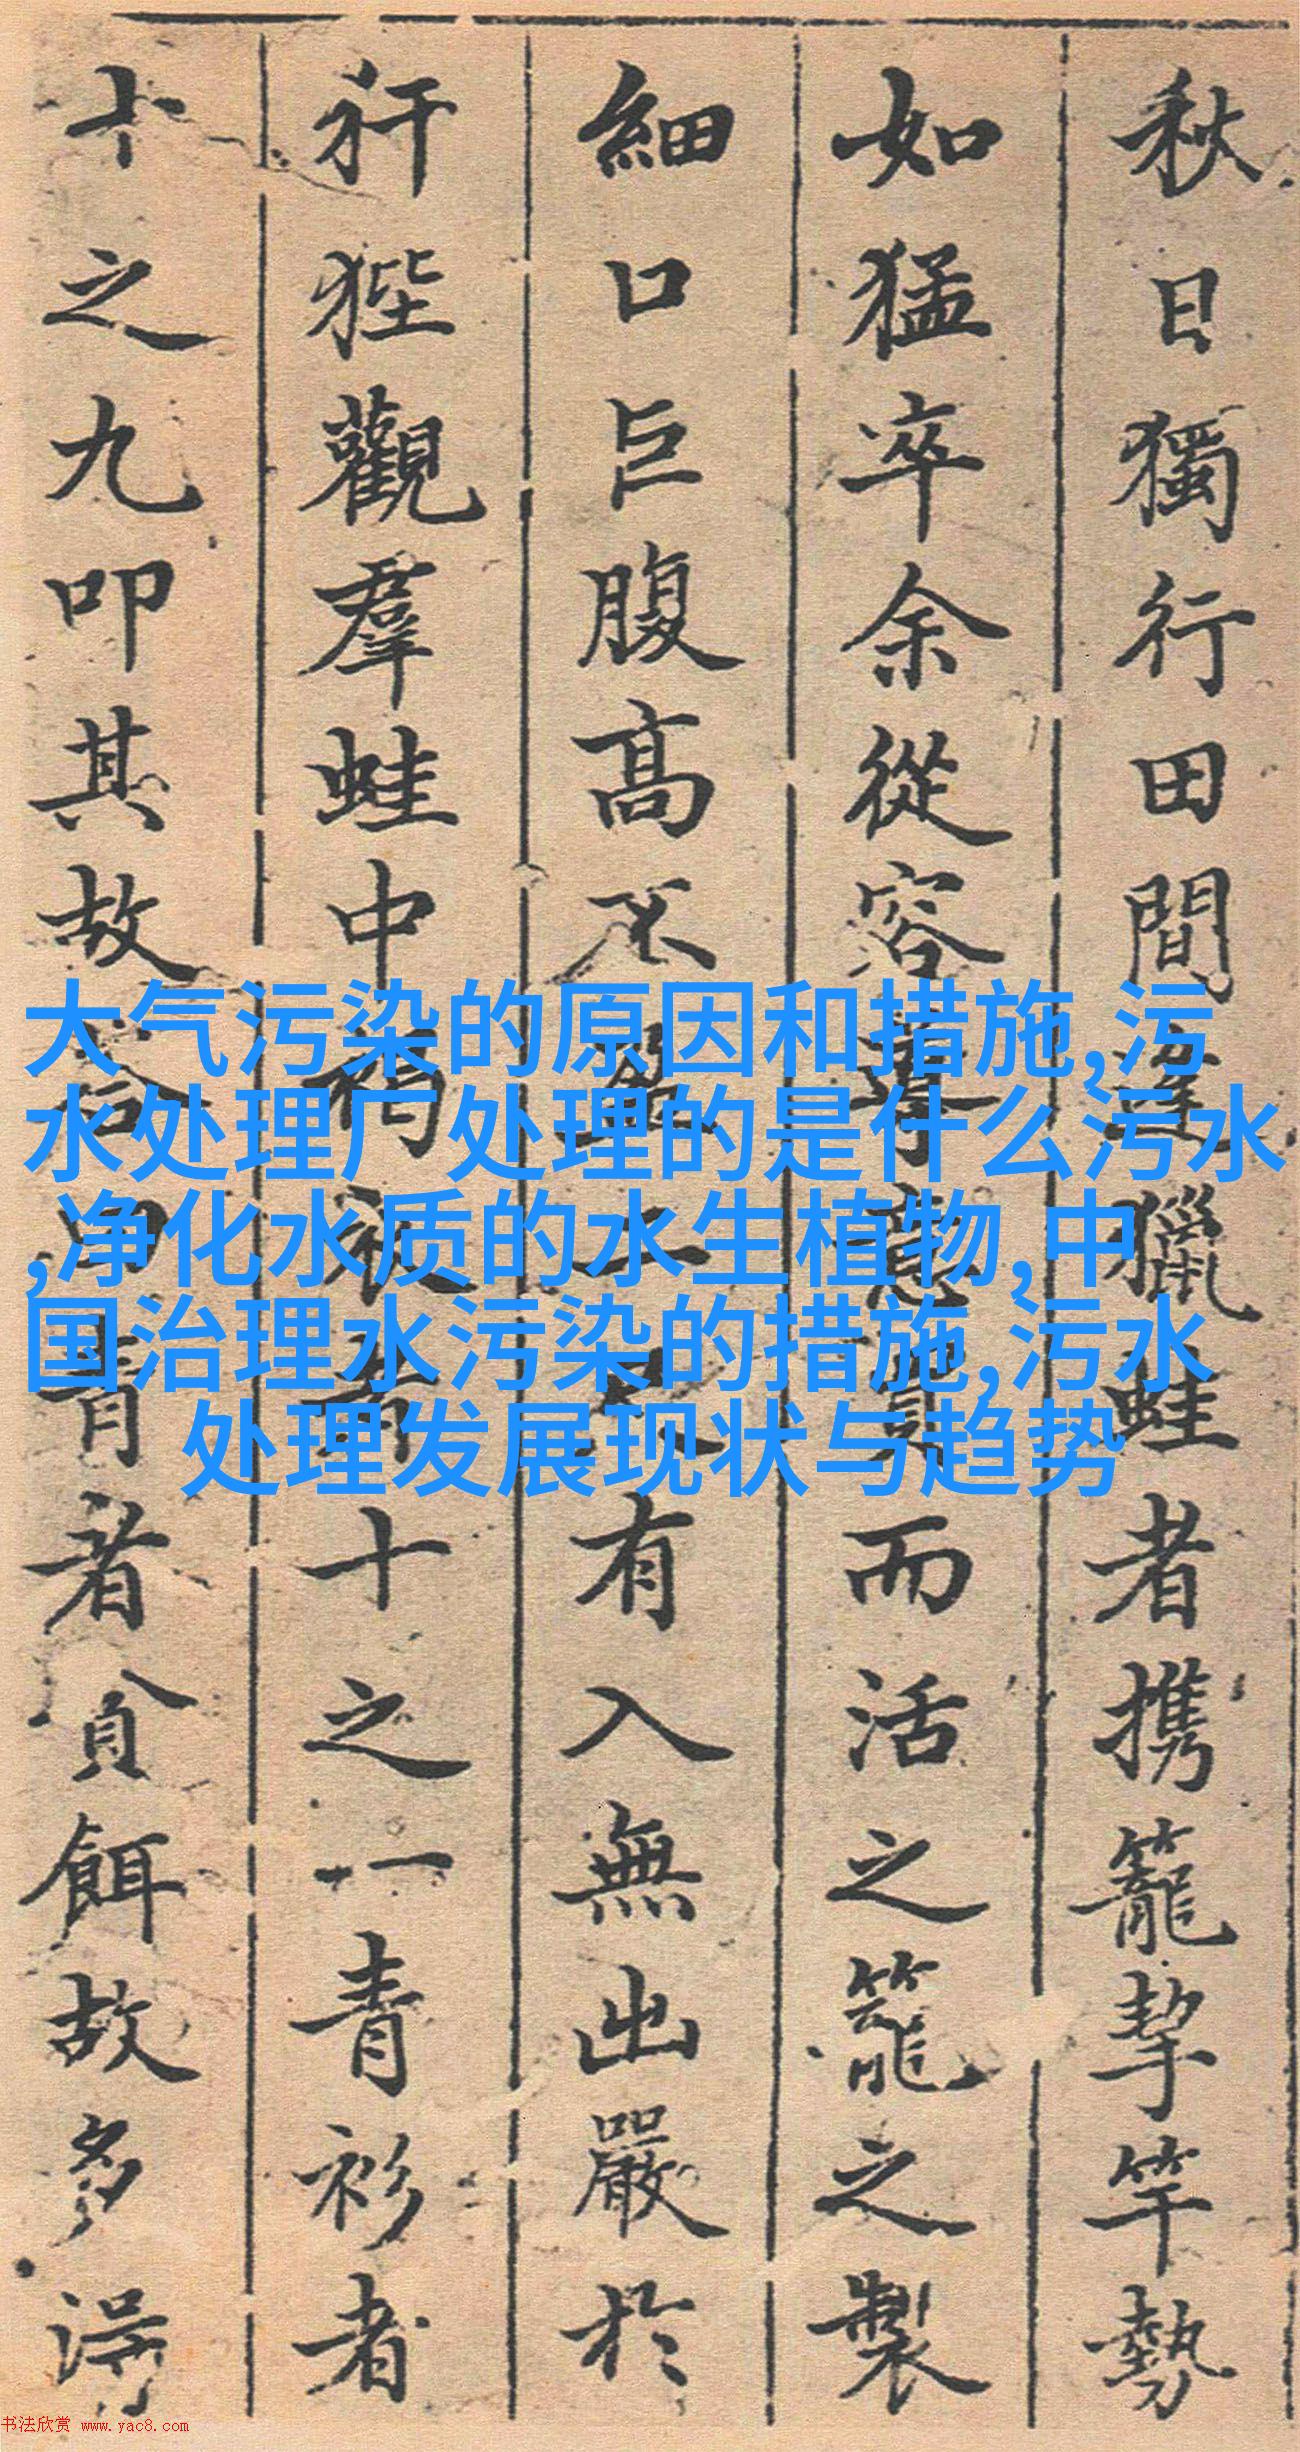 秋日獨行田間逢獵蛙者携籠挈竿勢
如猛卒余從容
而活之籠之製
細口巨腹高不盈二尺有入無出嚴於
犴狴觀羣蛙中褐衣者十之一青衫者
十之九叩其故答曰青者貪餌故多得
大气污染的原因和措施,污
水处理厂处理的是什么污水
,净化水质的水生植物,中
国治理水污染的措施,污水
处理发展现状与趋势
书法欣赏 www.yac8.com